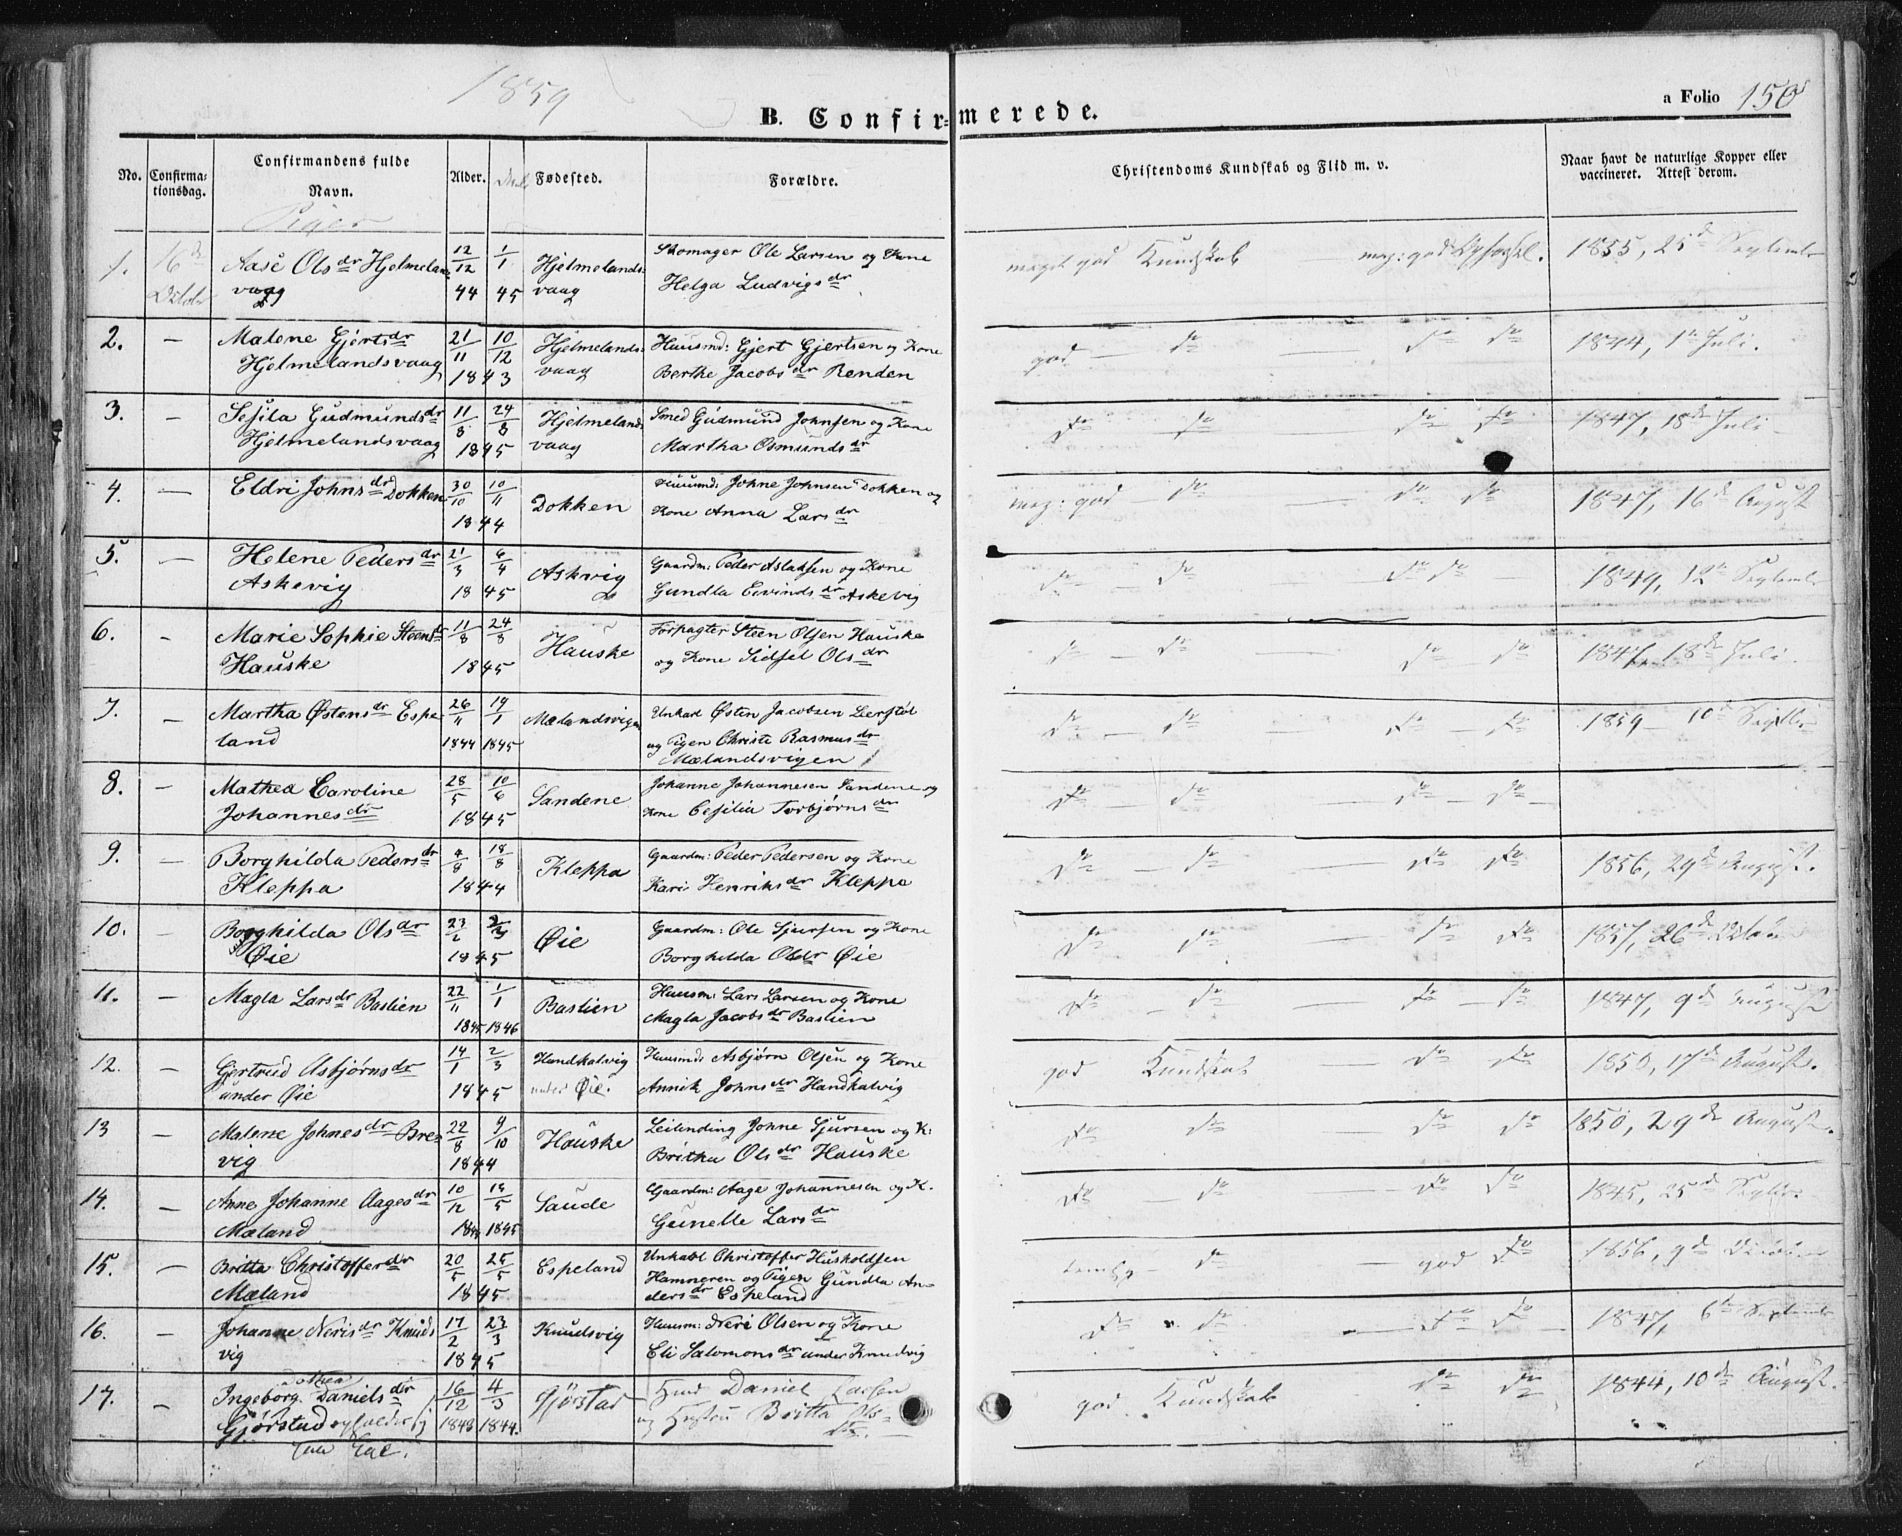 1859
a Folio 150
B. Confirmerede.
No. Confirmationsdag. Confirmandens fulde Navn. Alder. Fødested. Forældre. Christendoms Kundskab og Flid m. v. Naar havt de naturlige Kopper eller vaccineret. Attest derom.
Piger
1. 16de Aase Olsdr Hjelmelands- 12/12 1/1 Hjelmelands- Skomager Ole Larsen og Kone meget god Kundskab meg: god 1855, 25de September
October vaag 44 45 vaag Helga Ludvigsdr
2. — Malene Gjertsdr 21/11 10/12 Hjelmelands- Huusmd: Gjert Gjertsen og Kone god — do — do do 1844, 1te Juli.
Hjelmelandsvaag 1843 vaag Berthe Jacobsdr Renden
3. — Sesila Gudmundsdr 11/8 24/8 Hjelmelands- Smed Gudmund Johnsen og Kone do do do do 1847, 18de Juli
Hjelmelandsvaag 1845 vaag Martha Osmundsdr
4. — Eldri Johnsdr Dokken 30/10 10/11 Dokken Huusmd: Johne Johnsen Dokken og meg: god do — do do 1847, 16de August
1844 Kone Anna Larsdr
5. — Helene Pedersdr 21/3 6/4 Askvig Gaardm: Peder Aslaksen og Kone do — do do do 1849, 12te Septembr
Askevig 1845 Gundla Eivindsdr Askevig
6. — Marie Sophie Steensdr 11/8 24/8 Hauske Forpagter Steen Olsen Hauske do — do — do do 1847, 18de Juli.
Hauske 1845 og Kone Sidsel Olsdr
7. — Martha Østensdr Espe- 26/11 19/1 Mælandsvigen Unkarl Østen Jacobsen Leerstøl do — do — do do 1859 — 10de Septbr
land 1844 1845 og Pigen Christi Rasmusdr
Mælandsvigen
8. — Mathea Caroline 28/5 10/6 Sandene Johanne Johannesen Sandene og do — do — do — do —
Johannesdr 1845 Kone Cesilia Torbjørnsdr
9. — Borghilda Pedersdr 4/8 18/8 Kleppa Gaardm: Peder Pedersen og Kone do — do — do do 1856, 29de August.
Kleppa 1844 Kari Henriksdr Kleppa
10. — Borghilda Olsdr 23/2 2/3 Øie Gaardm: Ole Sjursen og Kone do do — do do 1857, 26de
Øie 1845 Borghilda Olsdr Øie
11. — Magla Larsdr Bastien 22/11 1/1 Bastien Huusm: Lars Larsen og Kone do — do — do — do 1847, 9de August
1845 1846 Magla Jacobsdr Bastien
12. — Gjertrud Asbjørnsdr 14/1 2/3 Handkalvig Huusmd: Asbjørn Olsen og Kone god Kundskab — do do 1850, 17de August.
under Øie 1845 under Øie. Annik Johnsdr Handkalvig
13 — Malene Johnesdr Bre- 22/8 9/10 Hauske Leilending Johne Sjursen og K: do do — do do 1850, 29de August.
vig 1844 Britha Olsdr Hauske
14. — Anne Johanne Aagesdr 10/12 14/5 Saude Gaardm: Aage Johannesen og K. do — do — do do 1845, 25de Septbr.
Mæland 1844 1845 Gunelle Larsdr
15. — Britta Christofferdr 20/5 25/5 Espeland Unkarl Christoffer Husholdsen — do — god do 1856, 9de
Mæland 1845 Hamneren og Pigen Gundla An-
dersdr Espeland
16. — Johanne Nerisdr Knuds- 17/2 23/3 Knudsvig Huusm: Neri Olsen og Kone do do — do do 1847, 6te Septembr
vig 1845 Eli Salomonsdr under Knudvig
17. — Ingeborg Dothea Danielsdr 16/12 4/3 Gjørstad Daniel Larsen god Kundskab do do 1844, 10de August.
Gjørstad og 1843 1844. og Britta Ols-
dr.